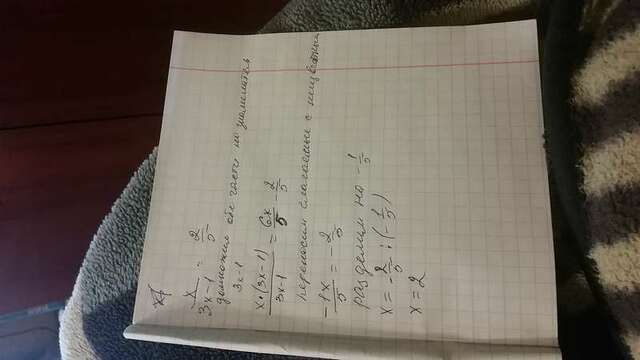 x/(3x-1) = 2/5
домножим обе части на знаменатель
3x-1
x·(3x-1)/(3x-1) = 6x/5 - 2/5
переносим слагаемые с неизвестным
-1x/5 = -2/5
разделим на -1/5
x = -2/5 : (-1/5)
x = 2